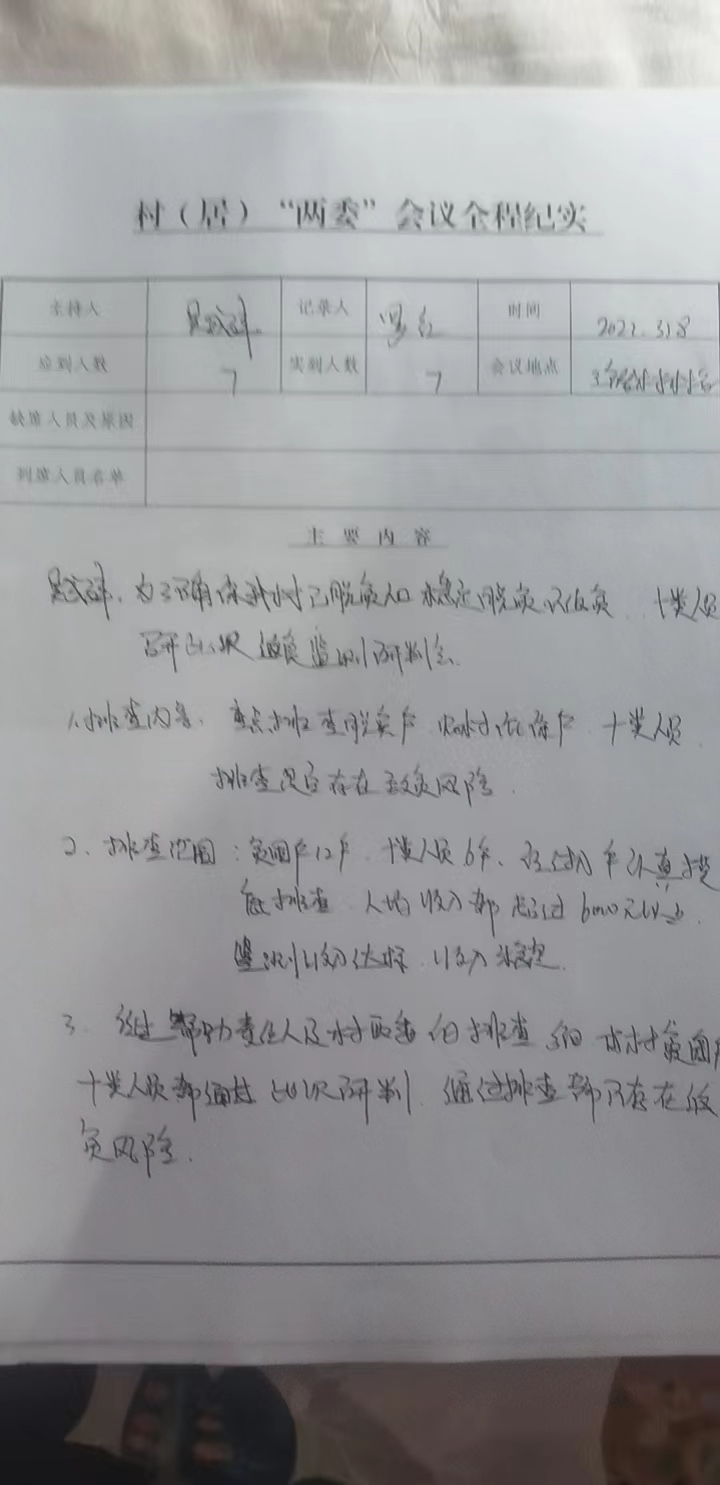 村（居）“两委”会议全程纪实
主持人 记录人 时间 2022.3.8
应到人数 7 实到人数 7 会议地点
缺席人员及原因
到席人员名单
主要内容
为了确保我村已脱贫人口稳定脱贫不返贫 十类人员
召开 返贫监测研判会
1、排查内容、重点排查脱贫户 低保户 十类人员
排查是否存在致贫风险
2、排查范围：贫困户12户 十类人员6户、认真摸
底排查 人均收入都超过6000元以上
监测收入达标 收入稳定
3、经过帮助责任人及村两委 排查 贫困户
十类人员都通过 研判 通过排查都不存在返
贫风险.